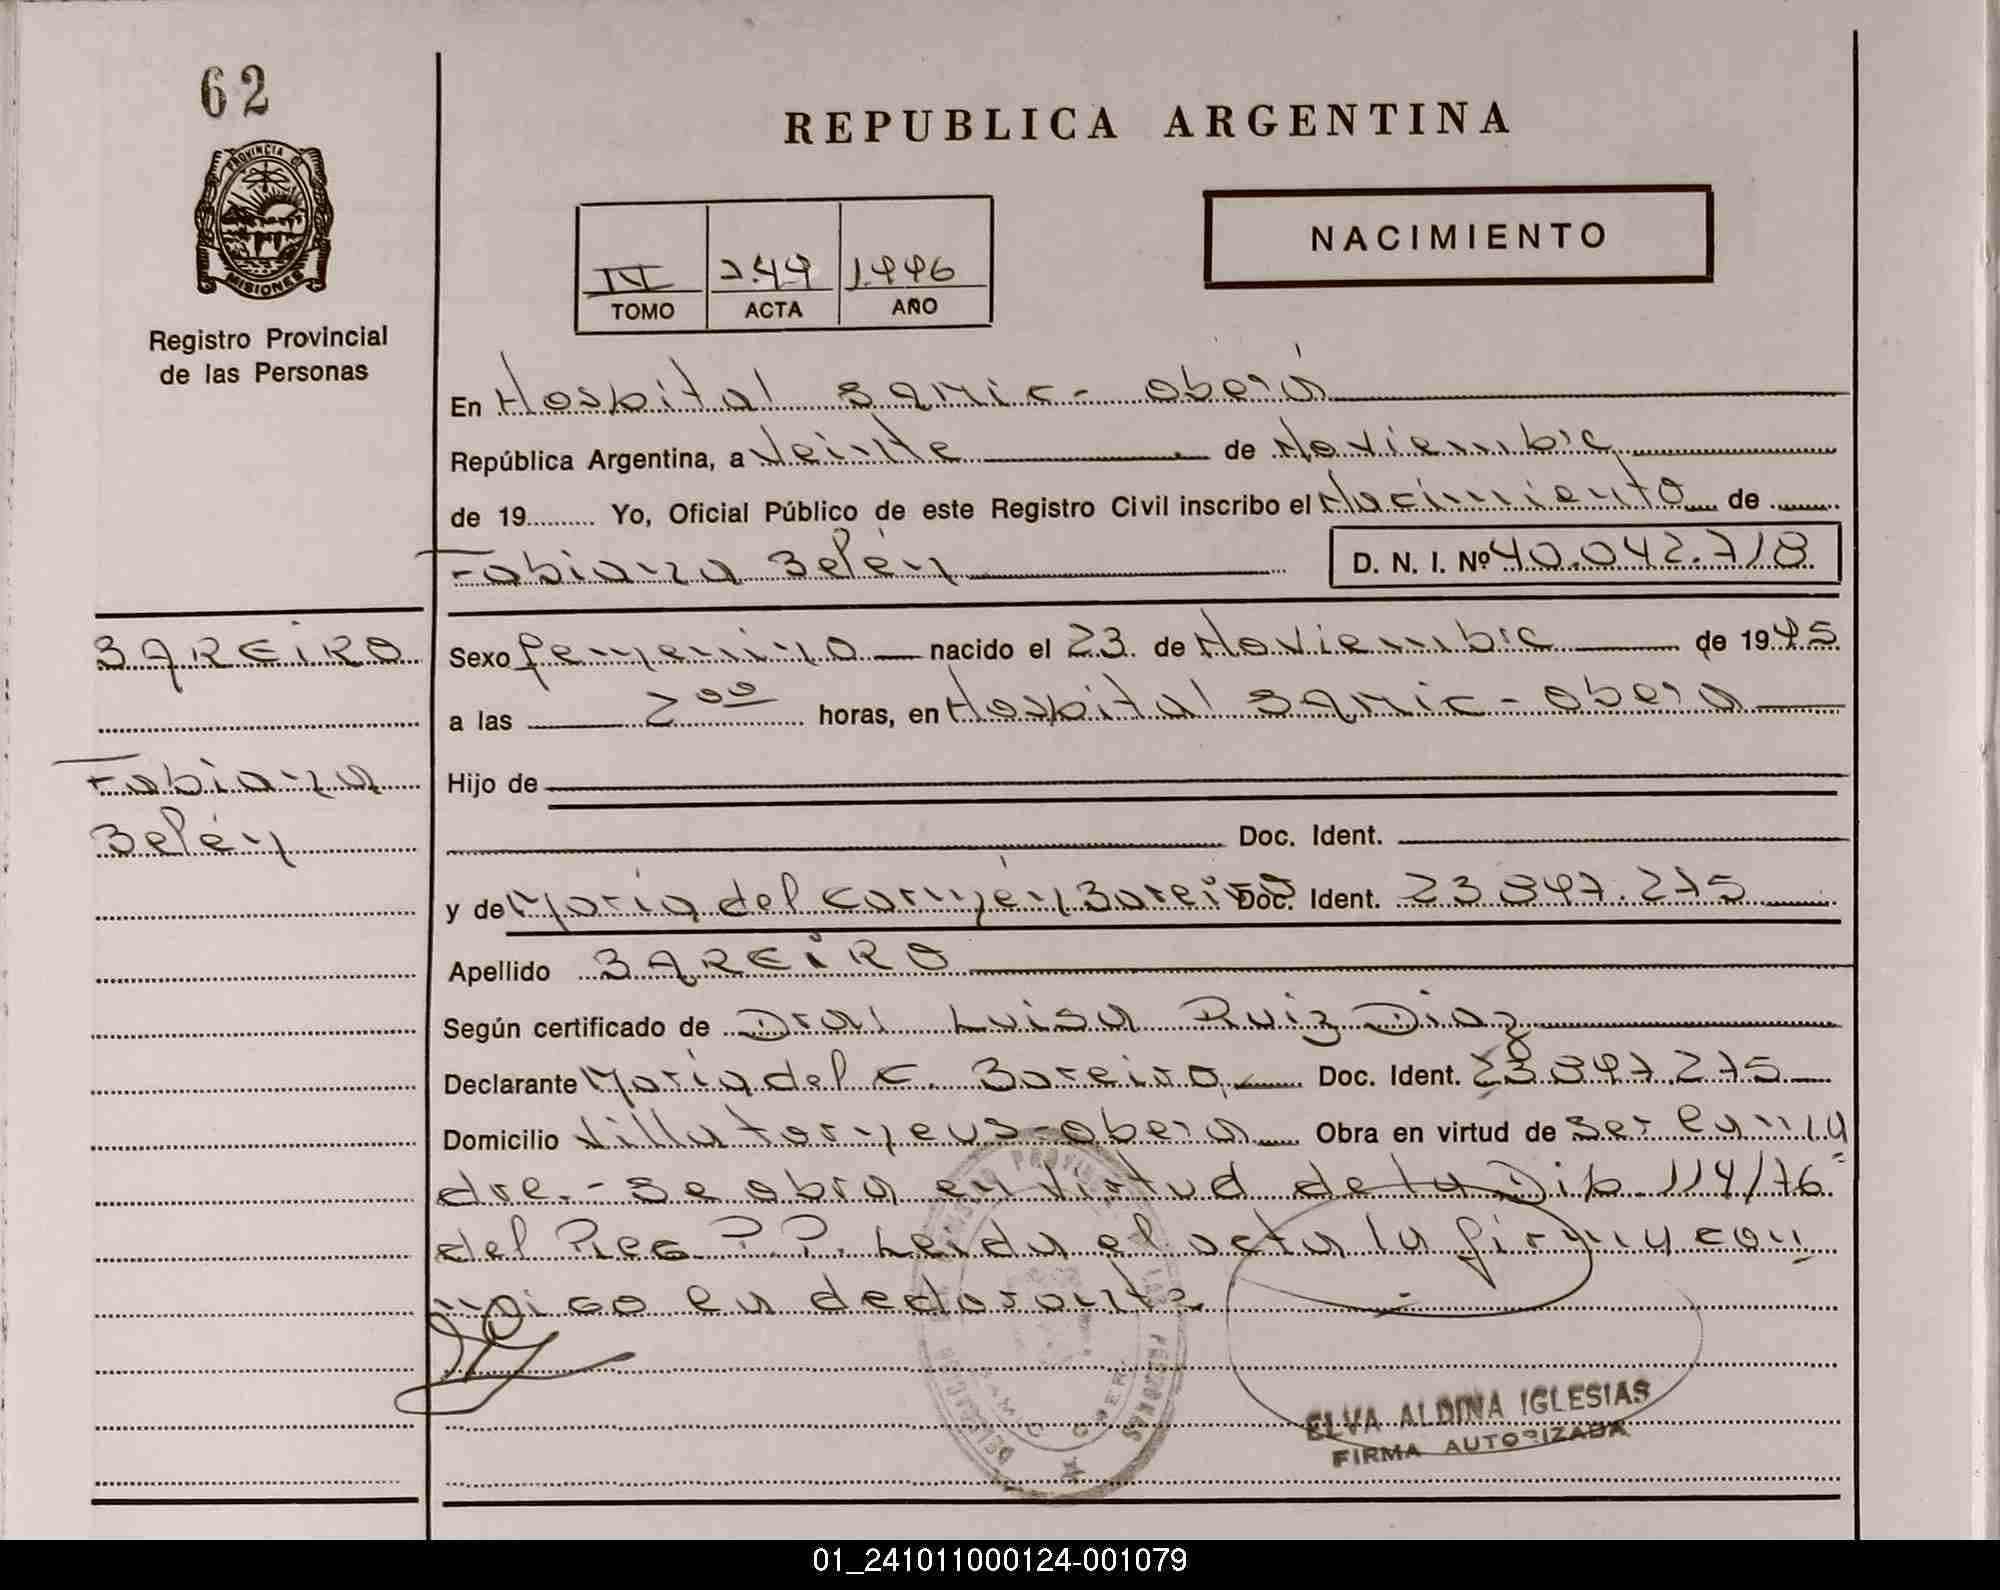 62
PROVINCIA DE
MISIONES
Registro Provincial
de las Personas
REPUBLICA ARGENTINA
NACIMIENTO
IV 249 1996
TOMO ACTA AÑO
En Hospital SAMIC - Oberá
República Argentina, a Veinte de Noviembre
de 19 Yo, Oficial Público de este Registro Civil inscribo el Nacimiento de
Fabiana Belén D. N. I. Nº 40.042.718
BAREIRO
Fabiana
Belén
Sexo femenino nacido el 23 de Noviembre de 1995
a las 2 00 horas, en Hospital SAMIC - Obera
Hijo de
Doc. Ident.
y de María del Carmén Bareiro Doc. Ident. 23.897.275
Apellido BAREIRO
Según certificado de Dra Luisa Ruiz Diaz
Declarante María del C. Bareiro, Doc. Ident. 23.897.275
Domicilio Villa Torneus - Obera Obra en virtud de ser la ma
dre.- Se obra en virtud de la Dip. 114/76=
del Reg. P.P. Leida el acta la firma con
migo la declarante
DELEGACION REGISTRO PROVINCIAL DE LAS PERSONAS
SAMIC OBERA
ELVA ALDINA IGLESIAS
FIRMA AUTORIZADA
01_241011000124-001079